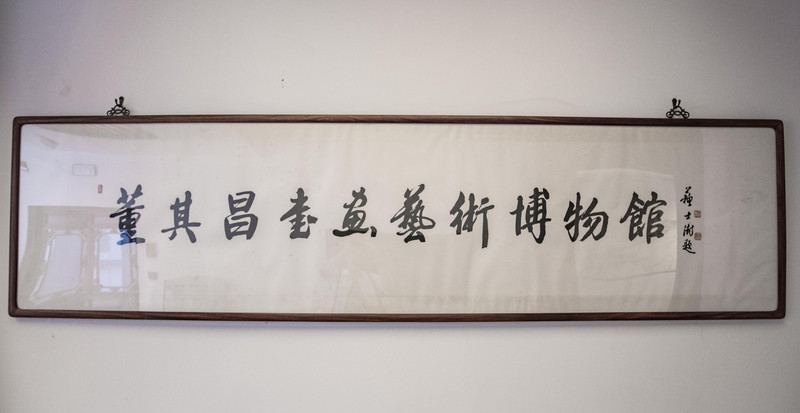 董其昌書畫藝術博物館
蘇士澍題